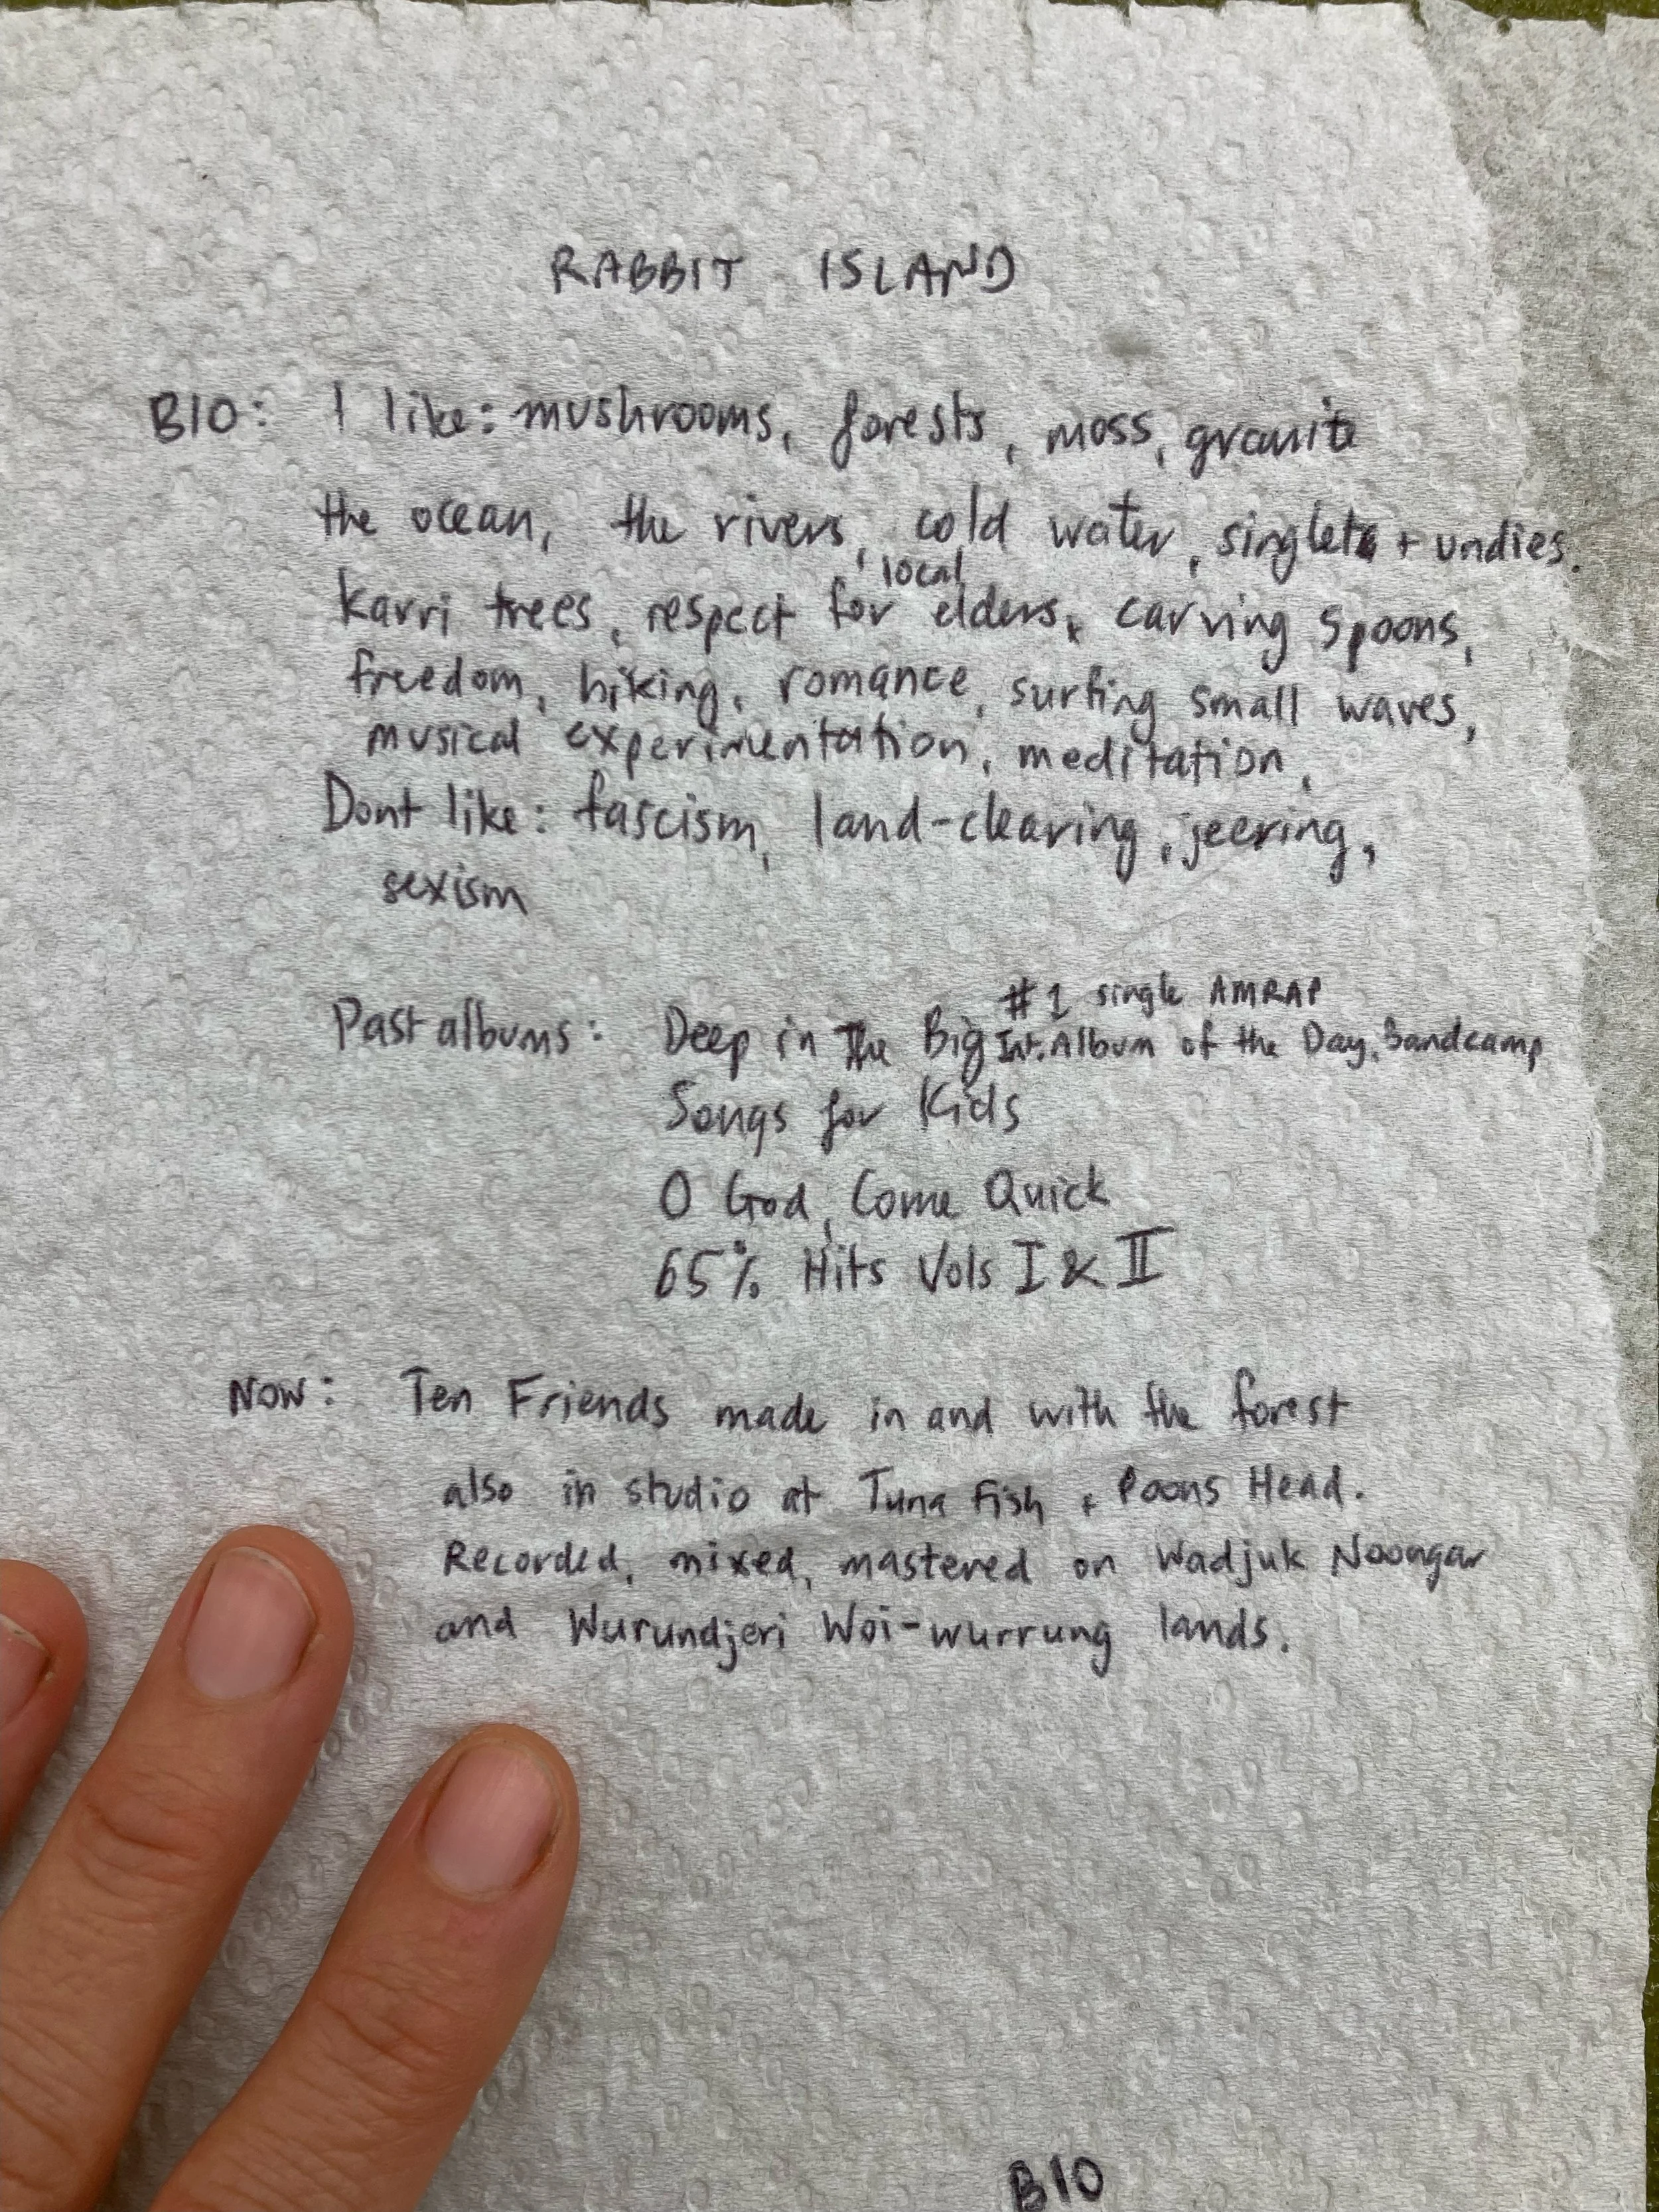 RABBIT ISLAND
BIO: I like: mushrooms, forests, moss, granite
the ocean, the rivers, cold water, singlets + undies.
karri trees, respect for local elders, carving spoons,
freedom, hiking, romance, surfing small waves,
musical experimentation, meditation,
Dont like: fascism, land-clearing, jeering,
sexism
#1 single AMRAP
Past albums: Deep in The Big Int. Album of the Day, Bandcamp
Songs for Kids
O God, Come Quick
65% Hits Vols I & II
NOW: Ten Friends made in and with the forest
also in studio at Tuna Fish + Poons Head.
Recorded, mixed, mastered on Wadjuk Noongar
and Wurundjeri Woi-wurrung lands.
BIO